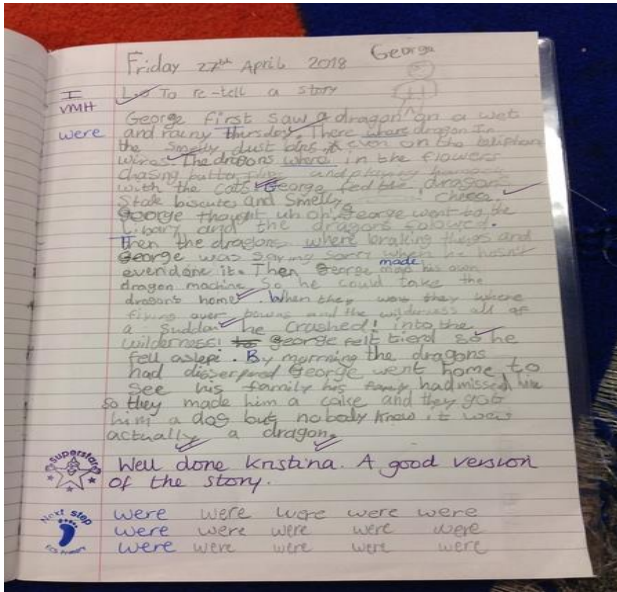 George
Friday 27th April 2018
I
VMH
L.O To re-tell a story
George first saw a dragon on a wet
were
and rainy Thursday. There where dragon In
the smelly dust bins, even on the teliphon
wires. The dragons where in the flowers
chasing butter flies and playing
with the cats. George fed the dragons
Stale biscutes and Smelly cheese.
George thought uh oh, George went to the
Libary and the dragons folowed.
Then the dragons where braking things and
George was saying sorry when he hasn't
made
even done it. Then George mad his own
dragon machine So he could take the
dragons home. When they were they where
flying over towns and the wilderness all of
a Suddan he crashed! into the
wilderness! George felt tierd so he
fell aslepe. By morrning the dragons
had disserpered George went home to
see his family his family had missed him
so they made him a cake and they got
him a dog but nobody knew it was
actually a dragon.
Superstars
Well done Kristina. A good version
of the story.
Next step
were were were were were
were were were were were
were were were were were